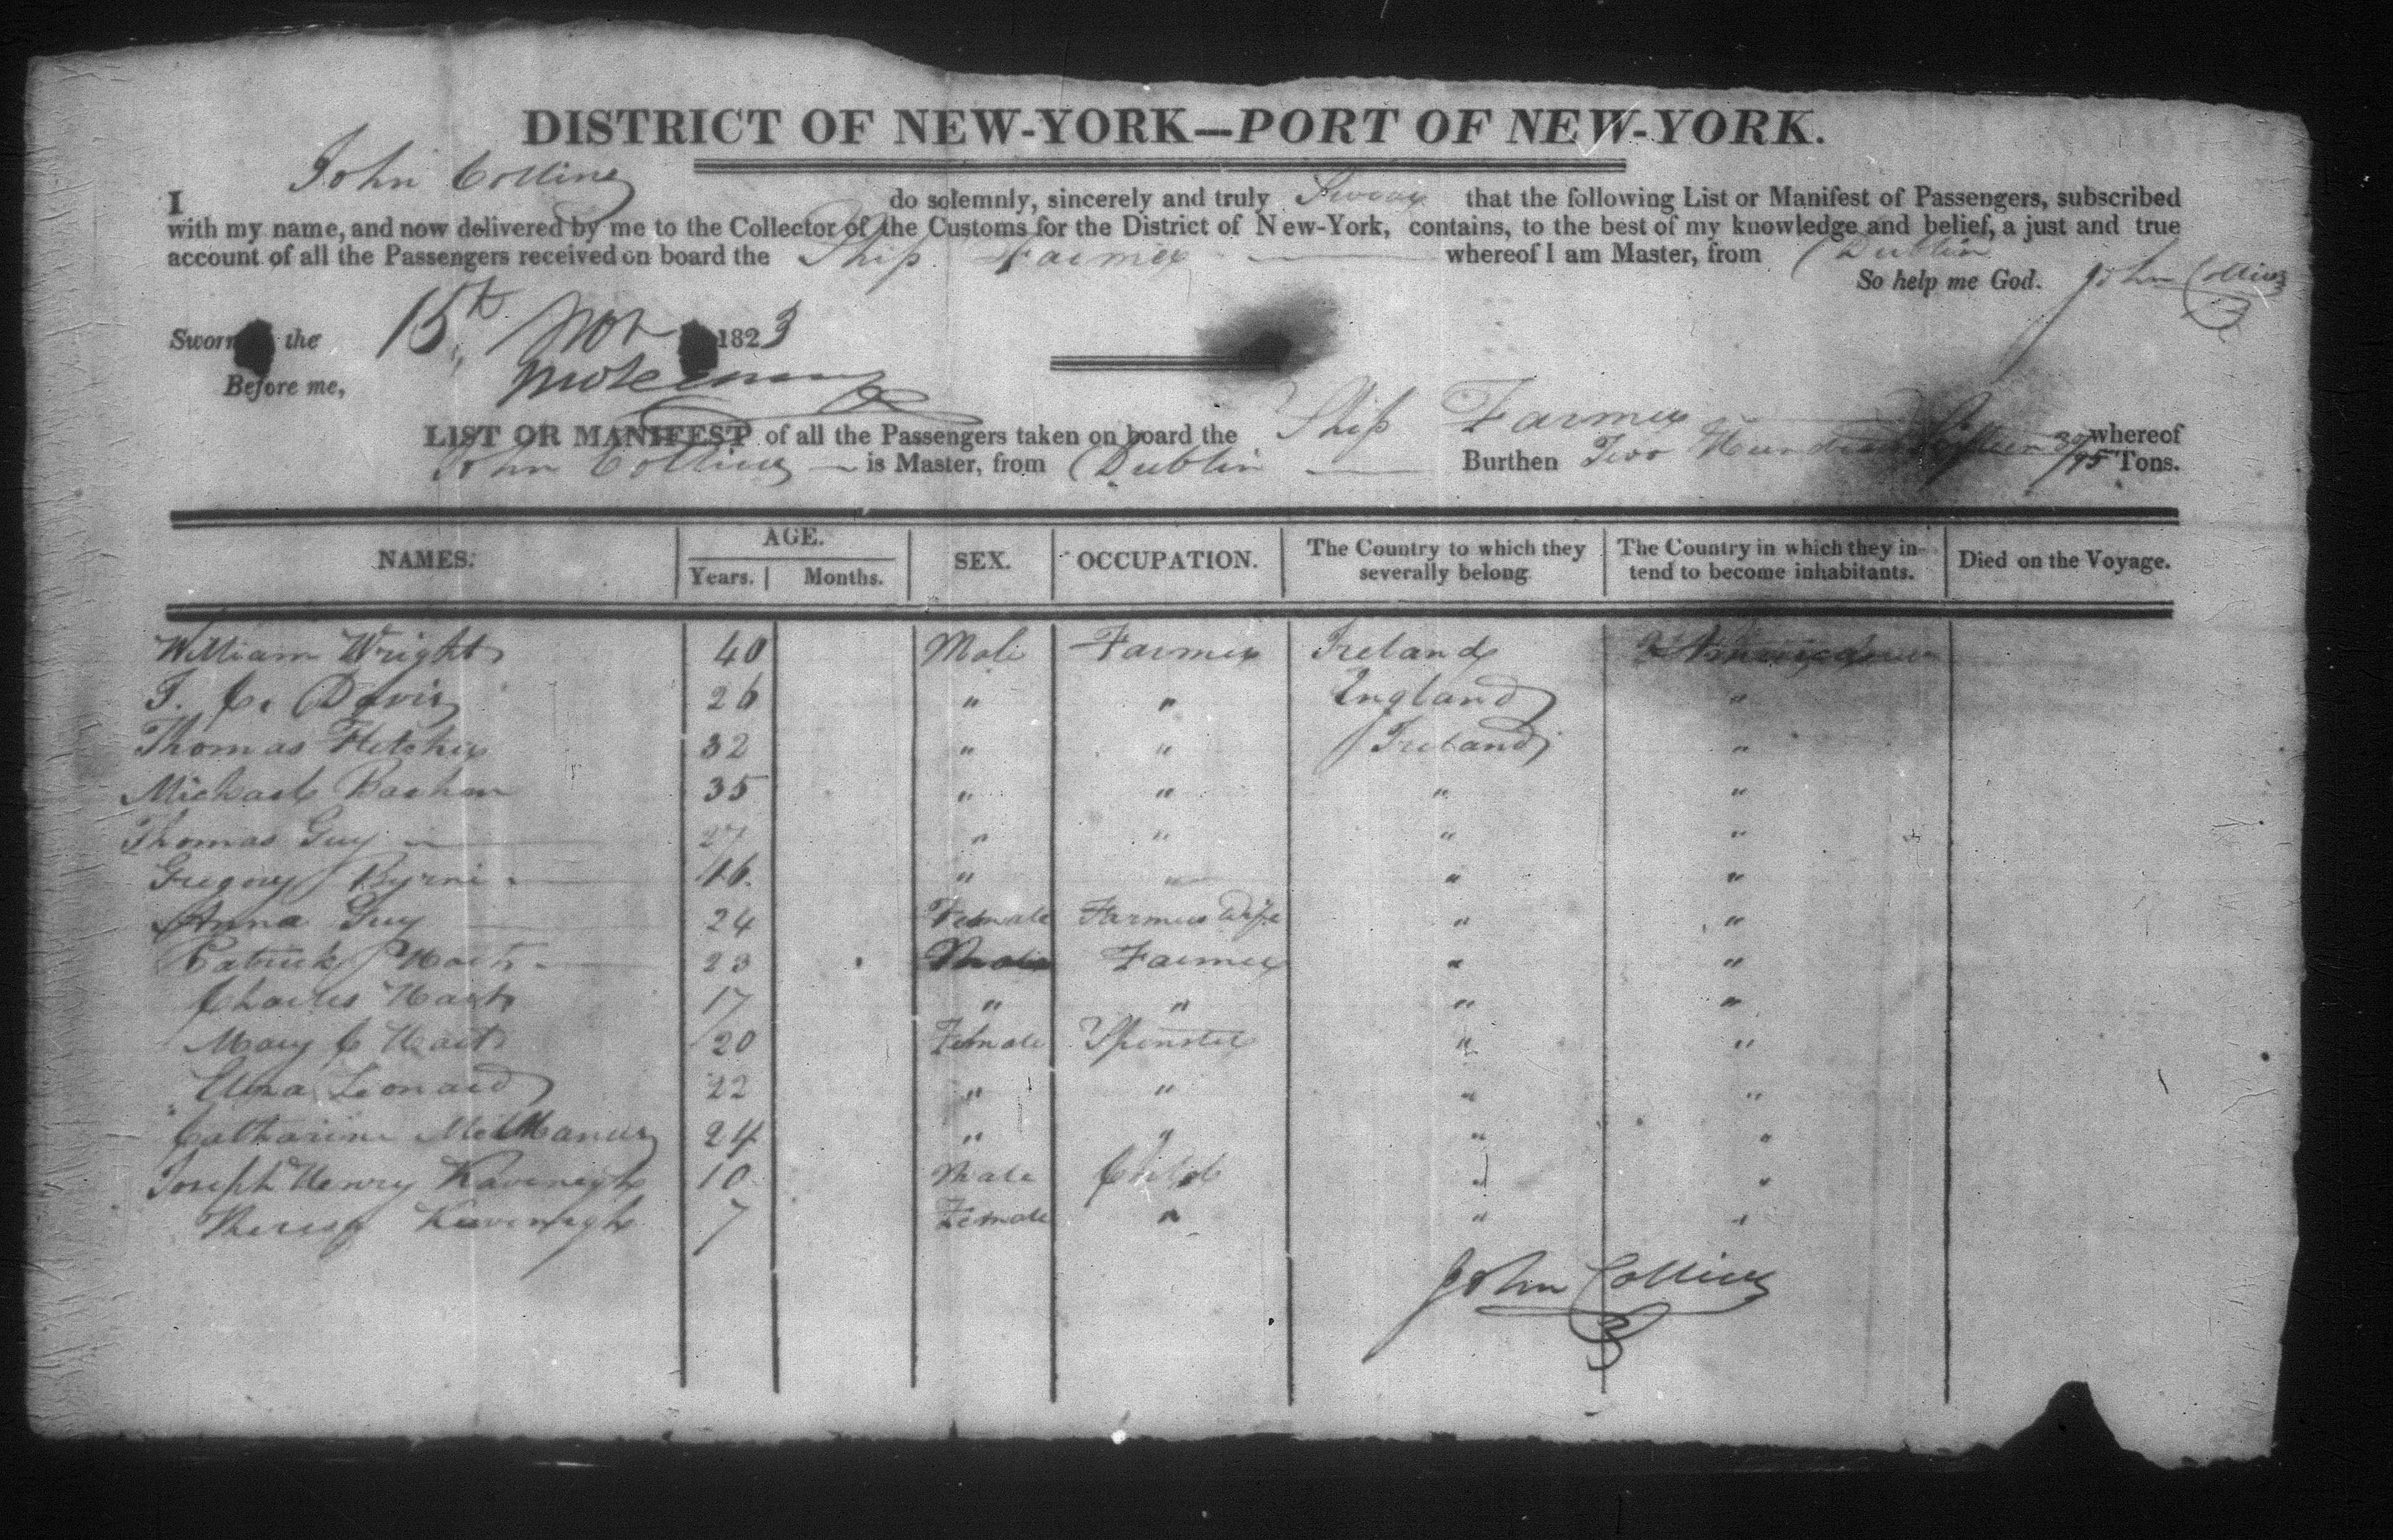 DISTRICT OF NEW-YORK—PORT OF NEW-YORK.
I John Collins do solemnly, sincerely and truly Swear that the following List or Manifest of Passengers, subscribed
with my name, and now delivered by me to the Collector of the Customs for the District of New-York, contains, to the best of my knowledge and belief, a just and true
account of all the Passengers received on board the Ship Farmer whereof I am Master, from Dublin
So help me God. John Collins
Sworn the 15th Nov 1823
Before me,
LIST OR MANIFEST of all the Passengers taken on board the Ship Farmer whereof
John Collins is Master, from Dublin Burthen Two Hundred 30/95 Tons.
NAMES. AGE. SEX. OCCUPATION. The Country to which they severally belong The Country in which they intend to become inhabitants. Died on the Voyage.
Years. Months.
William Wright 40 Male Farmer Ireland
J. C. Davis 26 " " England "
Thomas Fletcher 32 " " Ireland "
Michael 35 " " " "
Thomas Guy 27 " " " "
Gregory Byrne 16 " " " "
Anna Guy 24 Female Farmers Wife " "
Patrick Hart 23 Male Farmer " "
Charles Hart 17 " " " "
Mary C Hart 20 Female Spinster " "
Leonard 22 " " " "
Catharine McManus 24 " " " "
Joseph Henry Kavenagh 10 Male Child " "
Theresa Kavenagh 7 Female " " "
John Collins